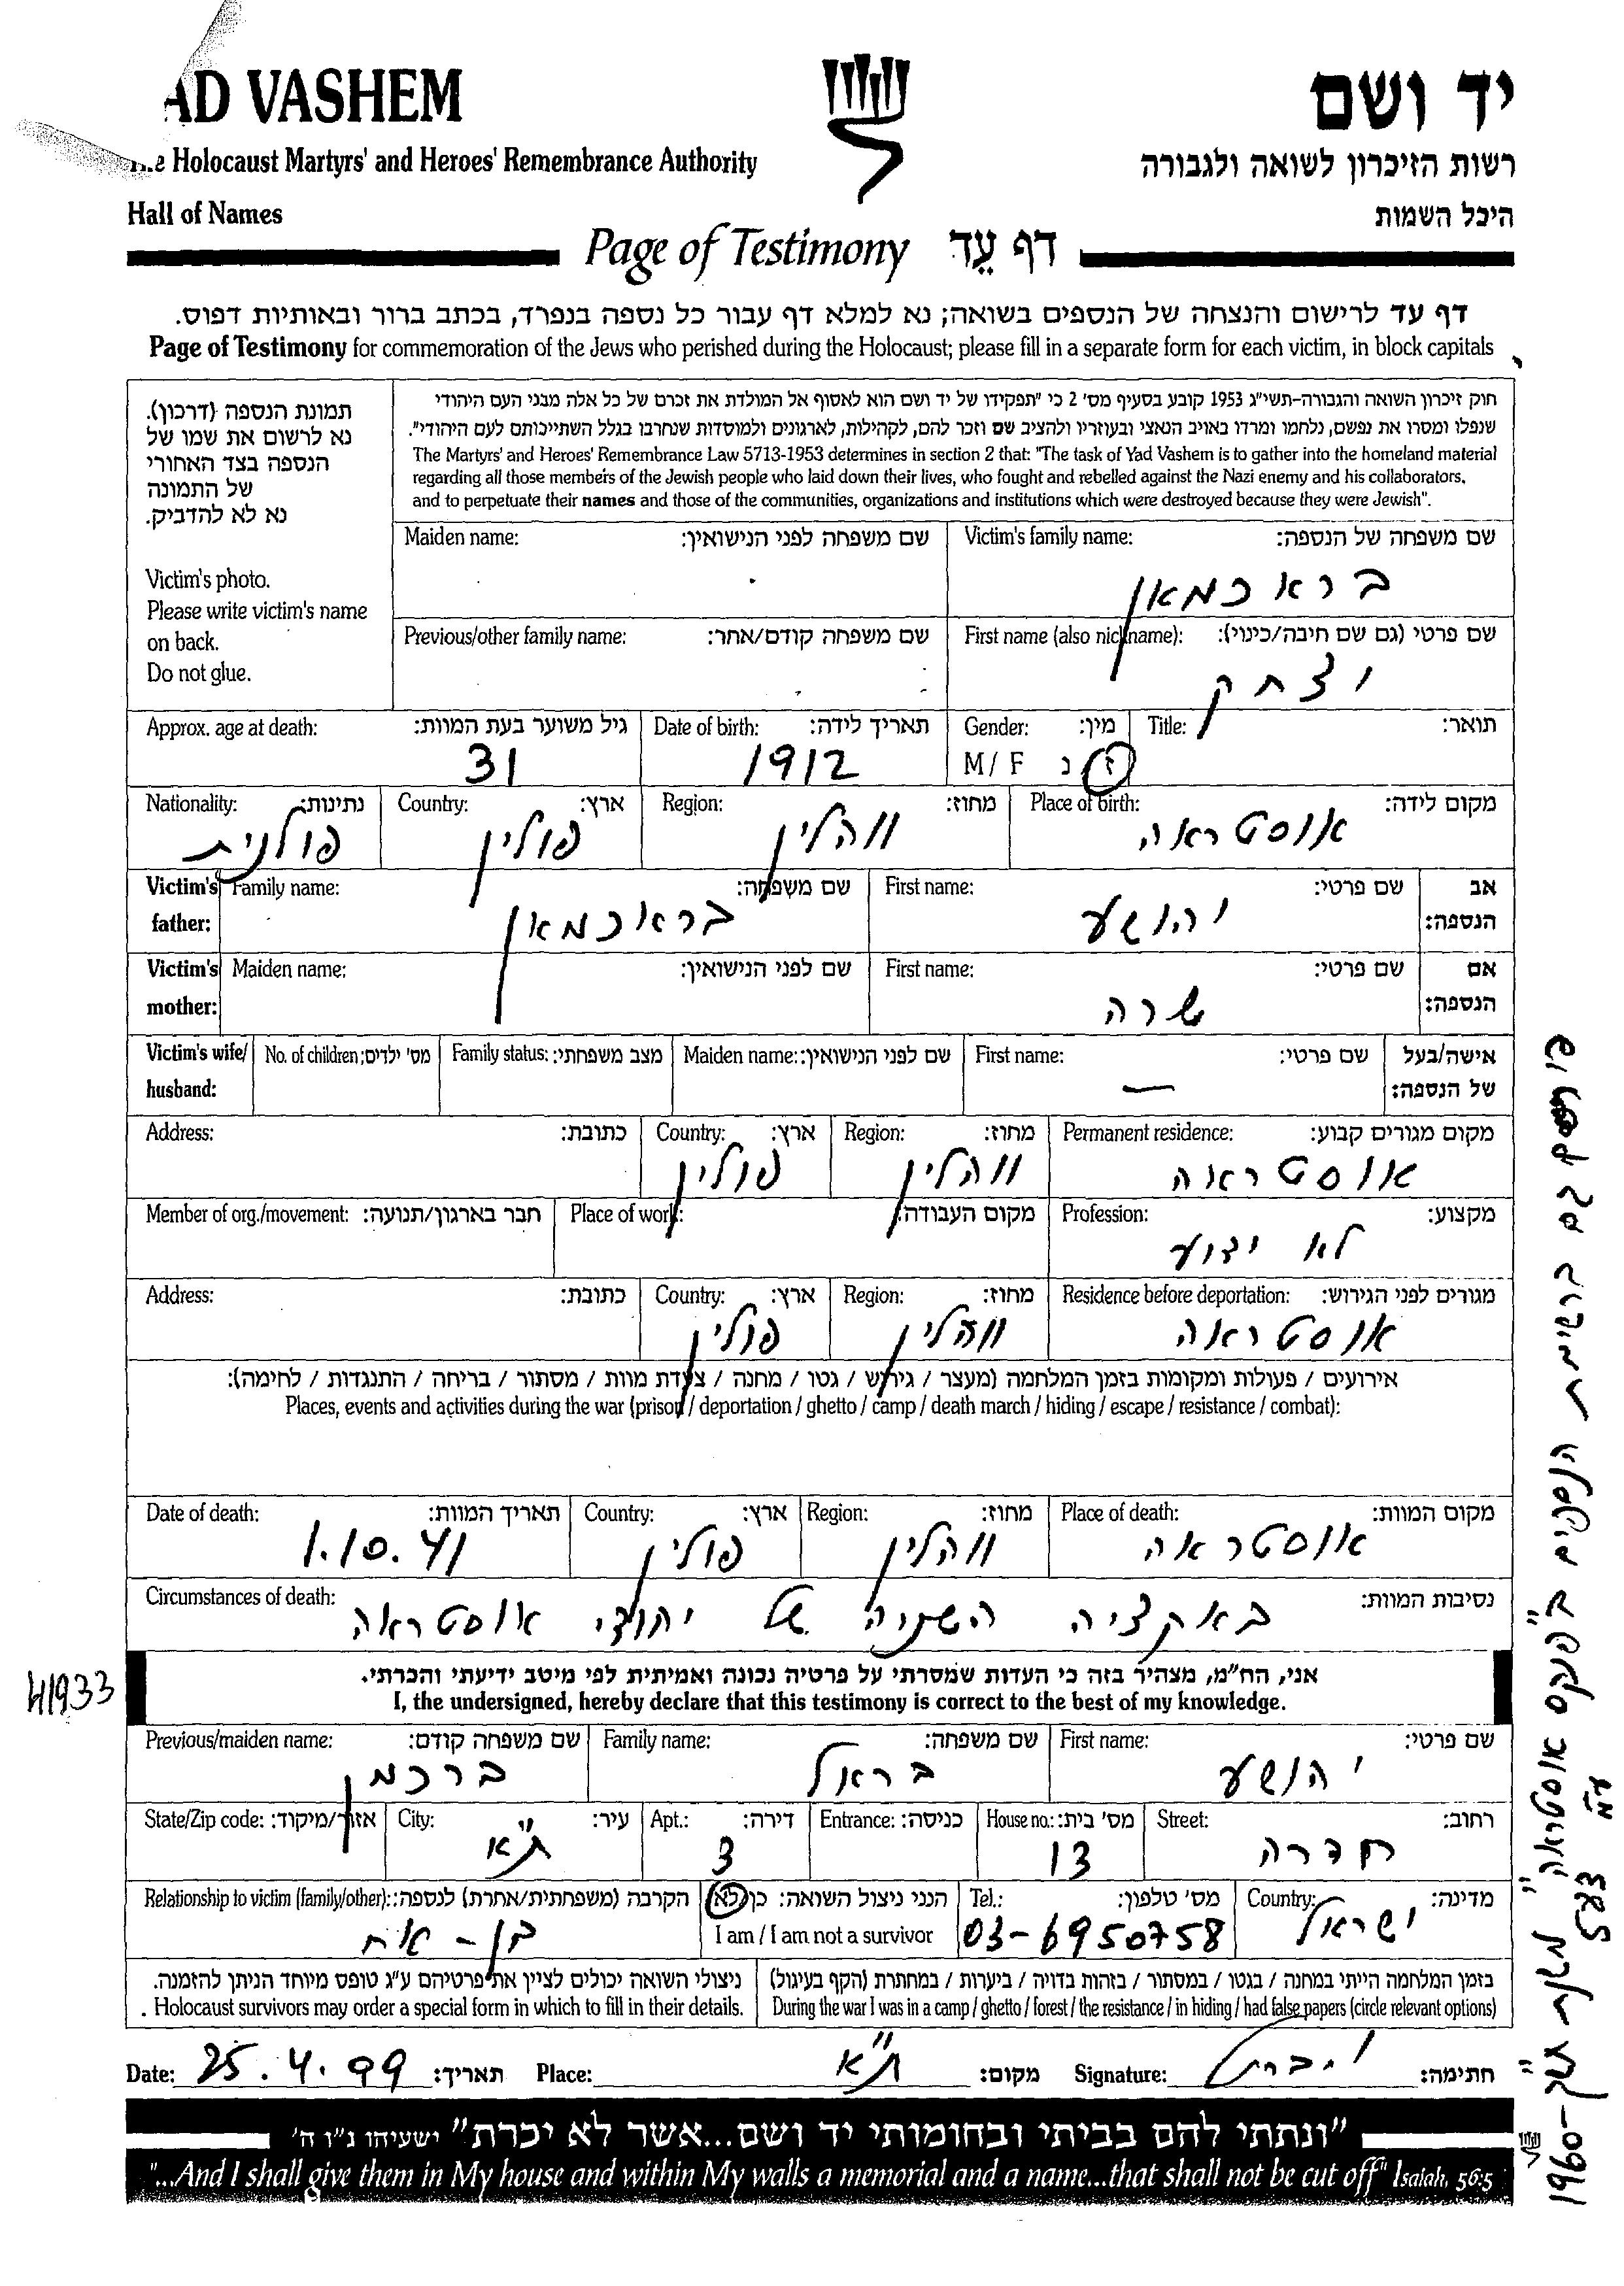 AD VASHEM
יד ושם
The Holocaust Martyrs' and Heroes' Remembrance Authority
רשות הזיכרון לשואה ולגבורה
Hall of Names
היכל השמות
Page of Testimony דף עֵד
דף עד לרישום והנצחה של הנספים בשואה; נא למלא דף עבור כל נספה בנפרד, בכתב ברור ובאותיות דפוס.
Page of Testimony for commemoration of the Jews who perished during the Holocaust; please fill in a separate form for each victim, in block capitals
חוק זיכרון השואה והגבורה-תשי״ג 1953 קובע בסעיף מס׳ 2 כי ״תפקידו של יד ושם הוא לאסוף אל המולדת את זכרם של כל אלה מבני העם היהודי
שנפלו ומסרו את נפשם, נלחמו ומרדו באויב הנאצי ובעוזריו ולהציב שם וזכר להם, לקהילות, לארגונים ולמוסדות שנחרבו בגלל השתייכותם לעם היהודי״.
The Martyrs' and Heroes' Remembrance Law 5713-1953 determines in section 2 that: "The task of Yad Vashem is to gather into the homeland material
regarding all those members of the Jewish people who laid down their lives, who fought and rebelled against the Nazi enemy and his collaborators,
and to perpetuate their names and those of the communities, organizations and institutions which were destroyed because they were Jewish".
תמונת הנספה (דרכון).
נא לרשום את שמו של
הנספה בצד האחורי
של התמונה
נא לא להדביק.
Victim's photo.
Please write victim's name
on back.
Do not glue.
Victim's family name: שם משפחה של הנספה:
בראכמאן
Maiden name: שם משפחה לפני הנישואין:
First name (also nickname): שם פרטי (גם שם חיבה/כינוי):
יצחק
Previous/other family name: שם משפחה קודם/אחר:
Title: תואר:
Gender: מין:
M/ F ז נ
Date of birth: תאריך לידה:
1912
Approx. age at death: גיל משוער בעת המוות:
31
Place of birth: מקום לידה:
אוסטראה
Region: מחוז:
ווהלין
Country: ארץ:
פולין
Nationality: נתינות:
פולנית
Victim's father: אב הנספה:
First name: שם פרטי:
יהושע
Family name: שם משפחה:
בראכמאן
Victim's mother: אם הנספה:
First name: שם פרטי:
שרה
Maiden name: שם לפני הנישואין:
Victim's wife/ husband: אישה/בעל של הנספה:
First name: שם פרטי:
—
Maiden name: שם לפני הנישואין:
Family status: מצב משפחתי:
No. of children: מס׳ ילדים:
Permanent residence: מקום מגורים קבוע:
אוסטראה
Region: מחוז:
ווהלין
Country: ארץ:
פולין
Address: כתובת:
Profession: מקצוע:
לא ידוע
Place of work: מקום העבודה:
Member of org./movement: חבר בארגון/תנועה:
Residence before deportation: מגורים לפני הגירוש:
אוסטראה
Region: מחוז:
ווהלין
Country: ארץ:
פולין
Address: כתובת:
אירועים / פעולות ומקומות בזמן המלחמה (מעצר / גירוש / גטו / מחנה / צעדת מוות / מסתור / בריחה / התנגדות / לחימה):
Places, events and activities during the war (prison / deportation / ghetto / camp / death march / hiding / escape / resistance / combat):
Place of death: מקום המוות:
אוסטראה
Region: מחוז:
ווהלין
Country: ארץ:
פולין
Date of death: תאריך המוות:
1.10.41
Circumstances of death: נסיבות המוות:
באקציה השניה של יהודי אוסטראה
אני, הח״מ, מצהיר בזה כי העדות שמסרתי על פרטיה נכונה ואמיתית לפי מיטב ידיעתי והכרתי.
I, the undersigned, hereby declare that this testimony is correct to the best of my knowledge.
41933
First name: שם פרטי:
יהושע
Family name: שם משפחה:
בראל
Previous/maiden name: שם משפחה קודם:
ברכמן
Street: רחוב:
חדרה
House no.: מס׳ בית:
13
Entrance: כניסה:
Apt.: דירה:
3
City: עיר:
ת״א
State/Zip code: אזור/מיקוד:
Country: מדינה:
ישראל
Tel.: מס׳ טלפון:
03-6950758
הנני ניצול השואה: כן/לא
I am / I am not a survivor
Relationship to victim (family/other): הקרבה (משפחתית/אחרת) לנספה:
בן-אח
בזמן המלחמה הייתי במחנה / בגטו / במסתור / בזהות בדויה / ביערות / במחתרת (הקף בעיגול)
During the war I was in a camp / ghetto / forest / the resistance / in hiding / had false papers (circle relevant options)
ניצולי השואה יכולים לציין את פרטיהם ע״ג טופס מיוחד הניתן להזמנה.
Holocaust survivors may order a special form in which to fill in their details.
Date: 25.4.99 תאריך: Place: ת״א מקום: Signature: חתימה:
״ונתתי להם בביתי ובחומותי יד ושם...אשר לא יכרת״ ישעיהו נ״ו ה׳
"...And I shall give them in My house and within My walls a memorial and a name...that shall not be cut off" Isaiah, 56:5
גם ברשימת הנספים ב״פנקס אוסטראה״ משנת תש״ך-1960
עמ׳